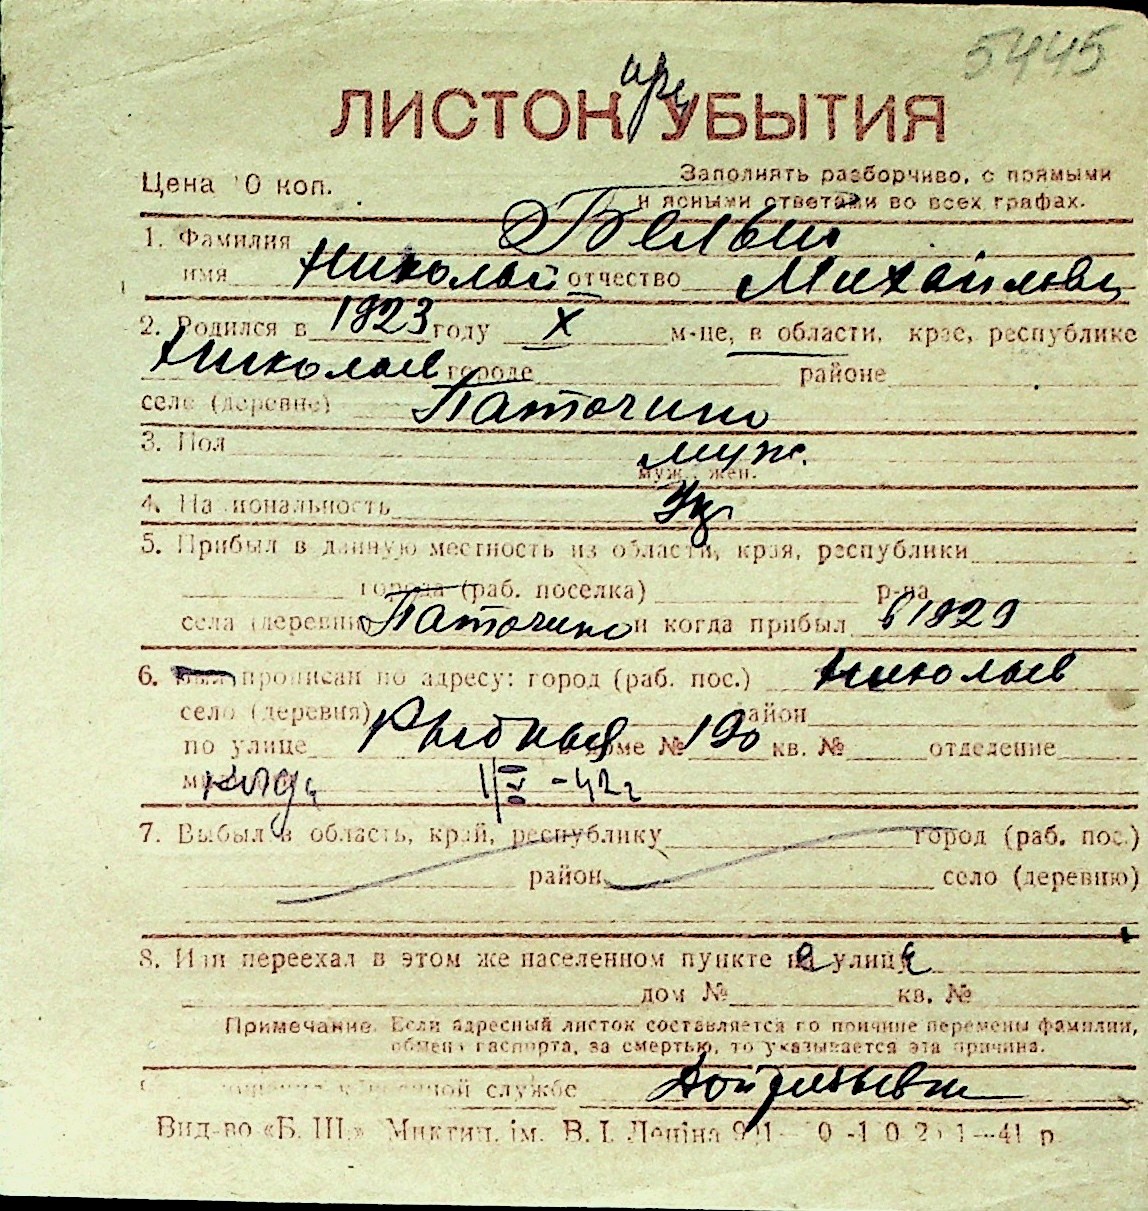 5445
при
ЛИСТОК УБЫТИЯ
Цена 10 коп. Заполнять разборчиво, с прямыми
и ясными ответами во всех графах.
1. Фамилия Белый
имя Николай отчество Михайлович
2. Родился в 1923 году X м-це, в области, крае, республике
Николаев городе районе
селе (деревне) Паточино
3. Пол муж.
муж., жен.
4. Национальность
5. Прибыл в данную местность из области, края, республики
города (раб. поселка) р-на
села (деревни) Паточино и когда прибыл в 1929
6. Был прописан по адресу: город (раб. пос.) Николаев
село (деревня) район
по улице Рыбная доме № 190 кв. № отделение
когда 1/V-42г
7. Выбыл в область, край, республику город (раб. пос.)
район село (деревню)
8. Или переехал в этом же населенном пункте на улицу
дом № кв. №
Примечание. Если адресный листок составляется по причине перемены фамилии,
обмена паспорта, за смертью, то указывается эта причина.
службе
Вид-во «Б. Ш.» Микгип. ім. В. І. Леніна